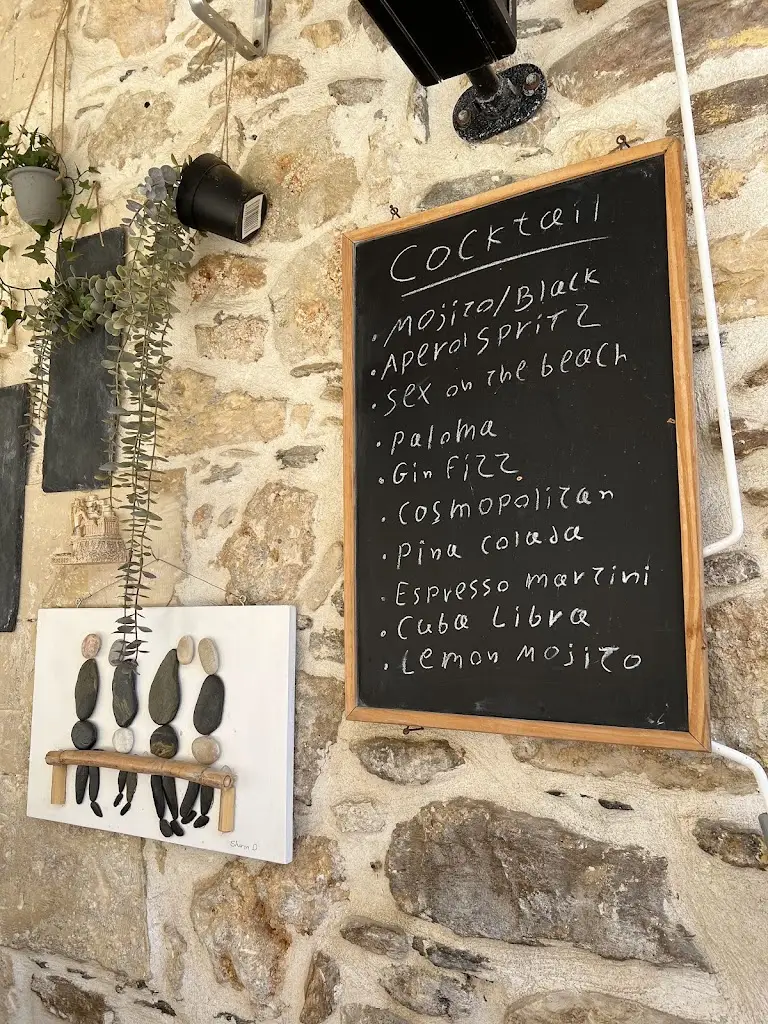 Cocktail
• Mojito/Black
• Aperol Spritz
• Sex on the beach
• Paloma
• Gin Fizz
• Cosmopolitan
• Pina colada
• Espresso martini
• Cuba Libra
• Lemon Mojito
Shirin D